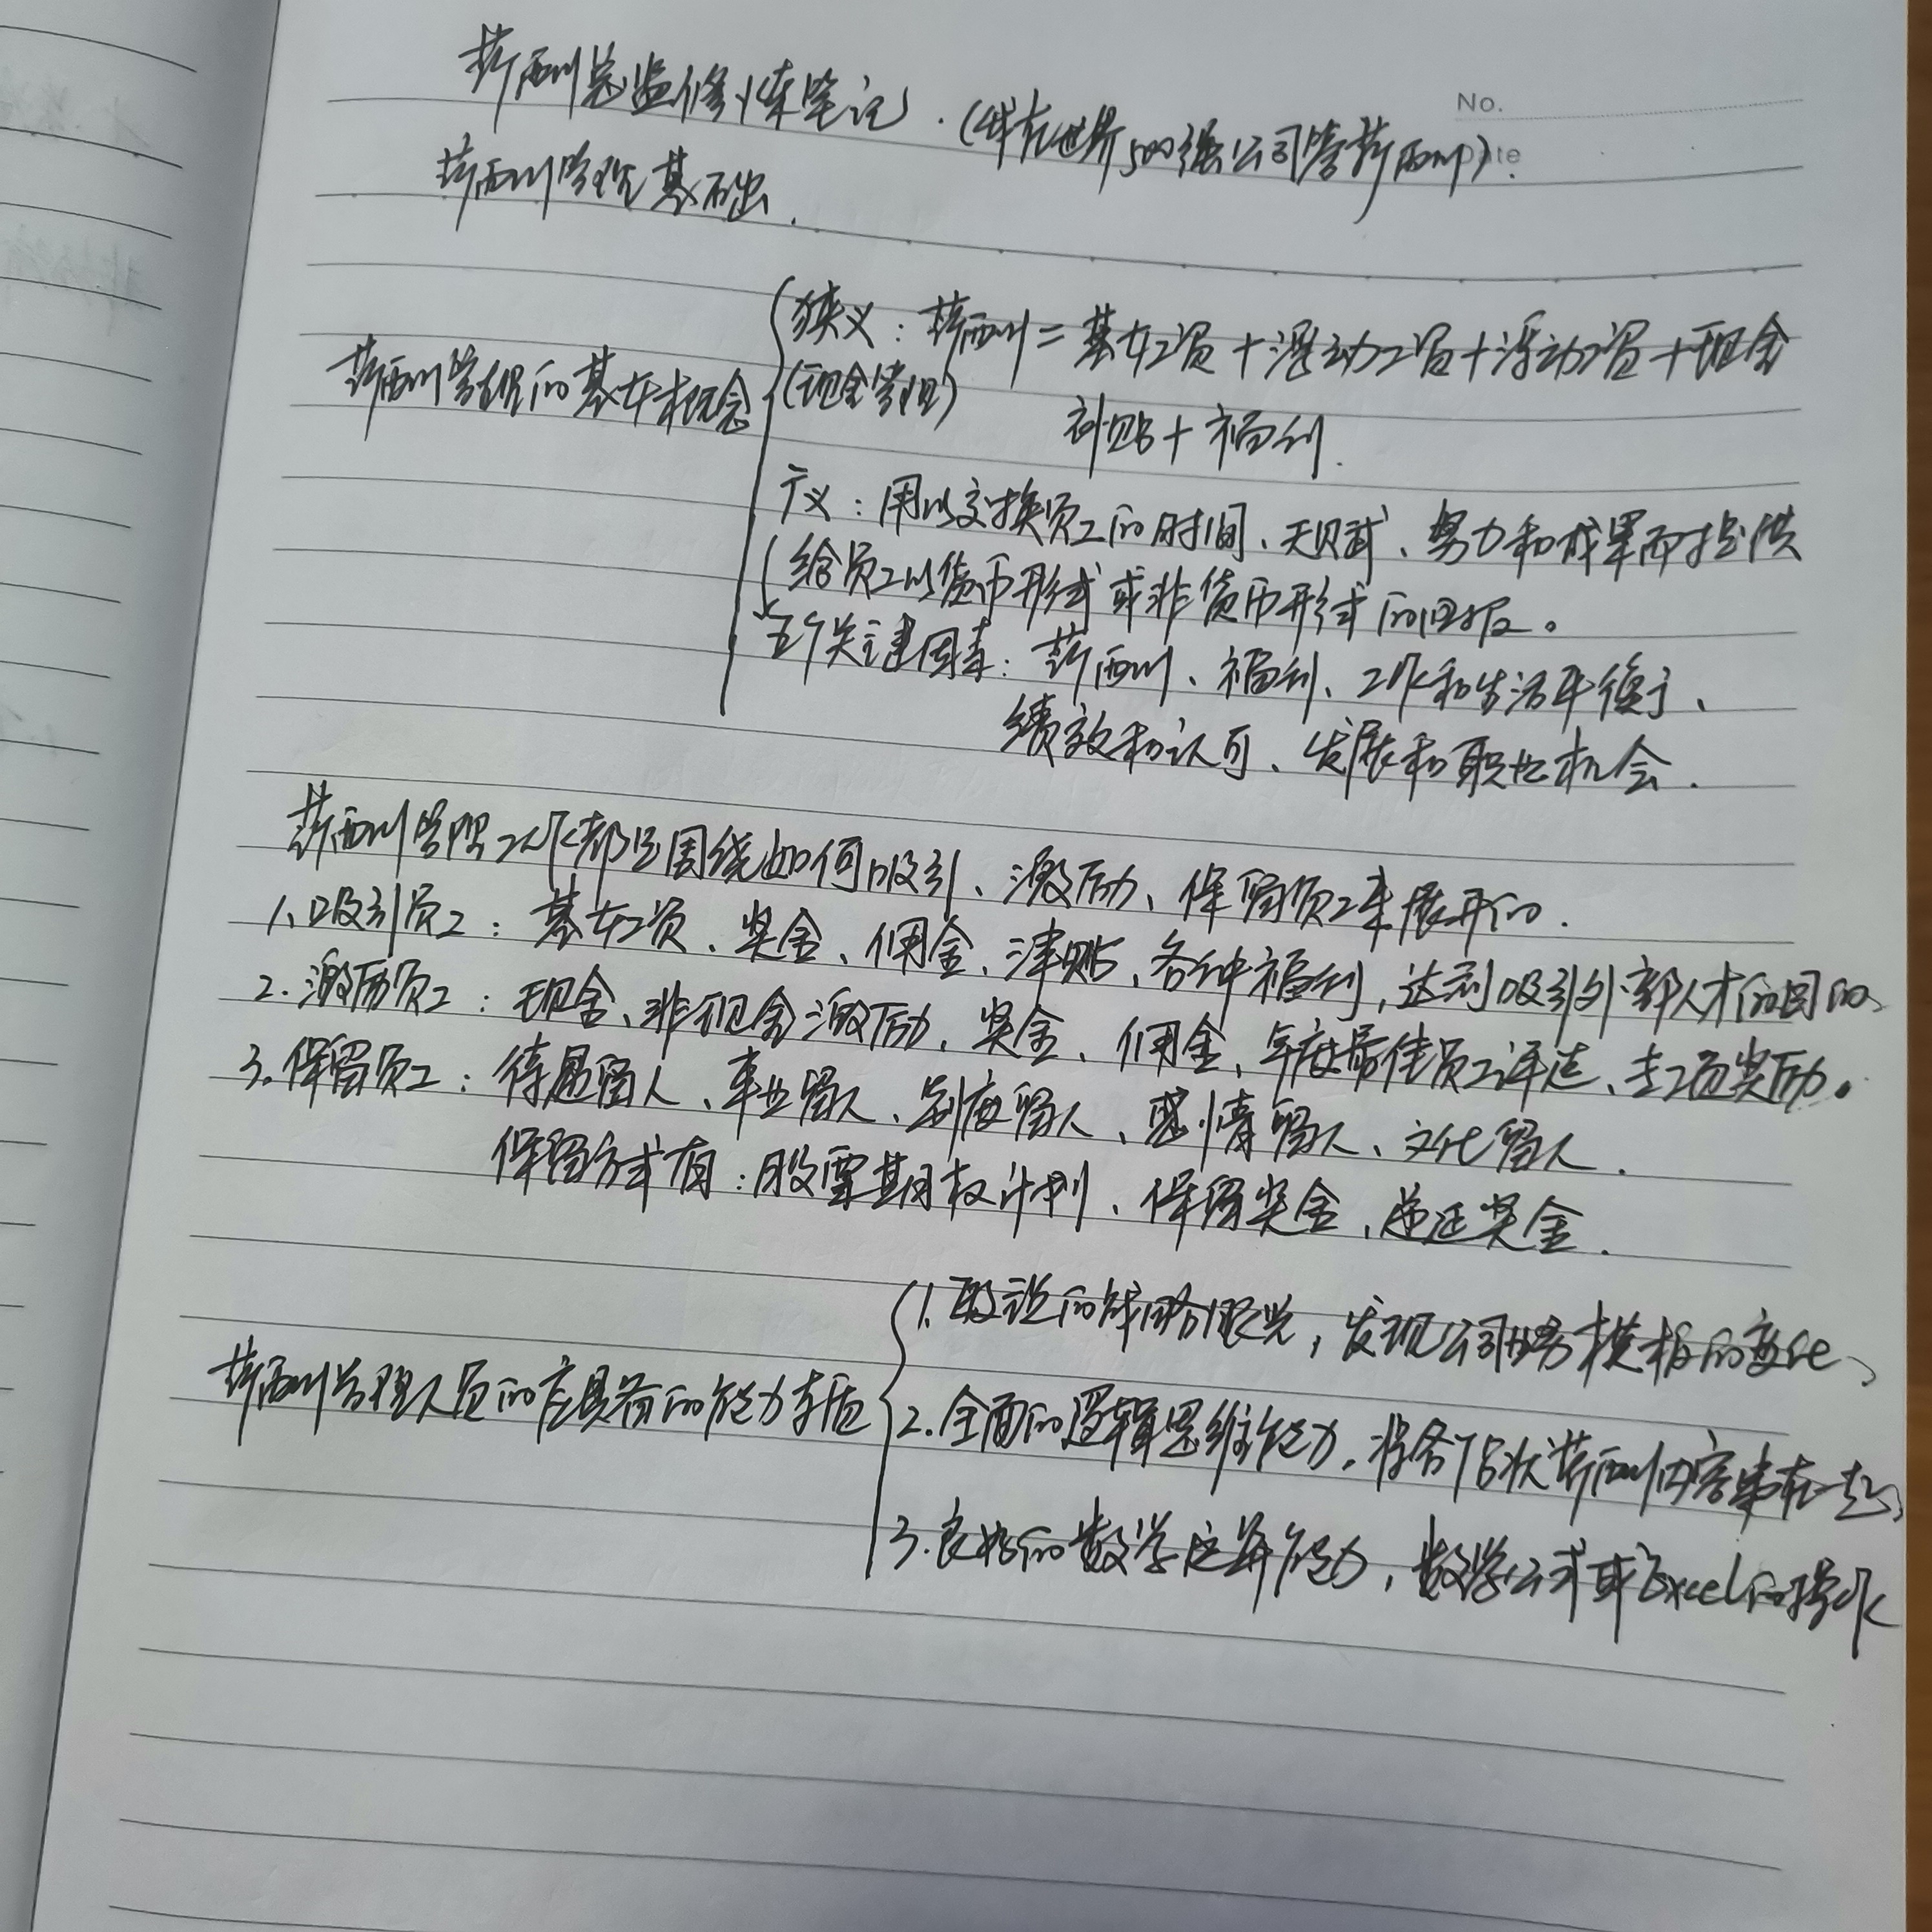 薪酬总监修炼笔记.(我在世界500强公司管薪酬).
No.
Date
薪酬管理基础.
狭义:薪酬=基本工资+浮动工资+浮动工资+现金
薪酬管理的基本概念 (现金管理)
补贴+福利.
广义:用以交换员工的时间、天赋、努力和成果而提供
给员工以货币形式或非货币形式的回报。
五个关键因素:薪酬、福利、工作和生活平衡、
绩效和认可、发展和职业机会.
薪酬管理工作都是围绕如何吸引、激励、保留员工来展开的.
1、吸引员工:基本工资、奖金、佣金、津贴、各种福利,达到吸引外部人才的目的、
2.激励员工:现金、非现金激励,奖金、佣金、年度最佳员工评选、员工奖励。
3.保留员工:待遇留人、事业留人、制度留人、感情留人、文化留人.
保留方式有:股票期权计划、保留奖金、递延奖金.
1.敏锐的战略眼光,发现公司业务模板的变化、
薪酬管理人员的应具备的能力素质
2.全面的逻辑思维能力,将各个块状薪酬内容串在一起、
3.良好的数学运算能力,数学公式或Excel的操作